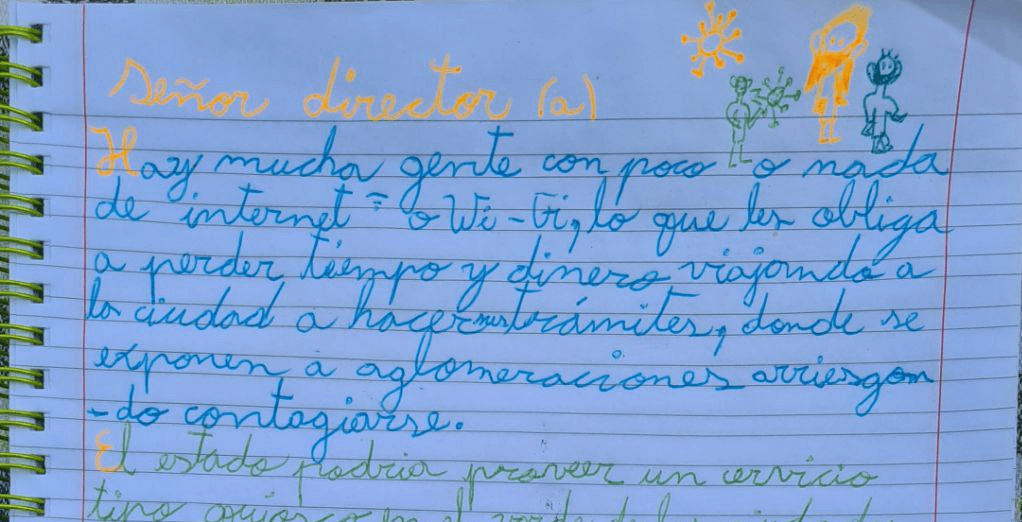 Señor director (a)
Hay mucha gente con poco o nada
de internet = o Wi-Fi, lo que les obliga
a perder tiempo y dinero viajando a
la ciudad a hacer sus trámites, donde se
exponen a aglomeraciones arriesgan
-do contagiarse.
El estado podria proveer un cervicio
tipo